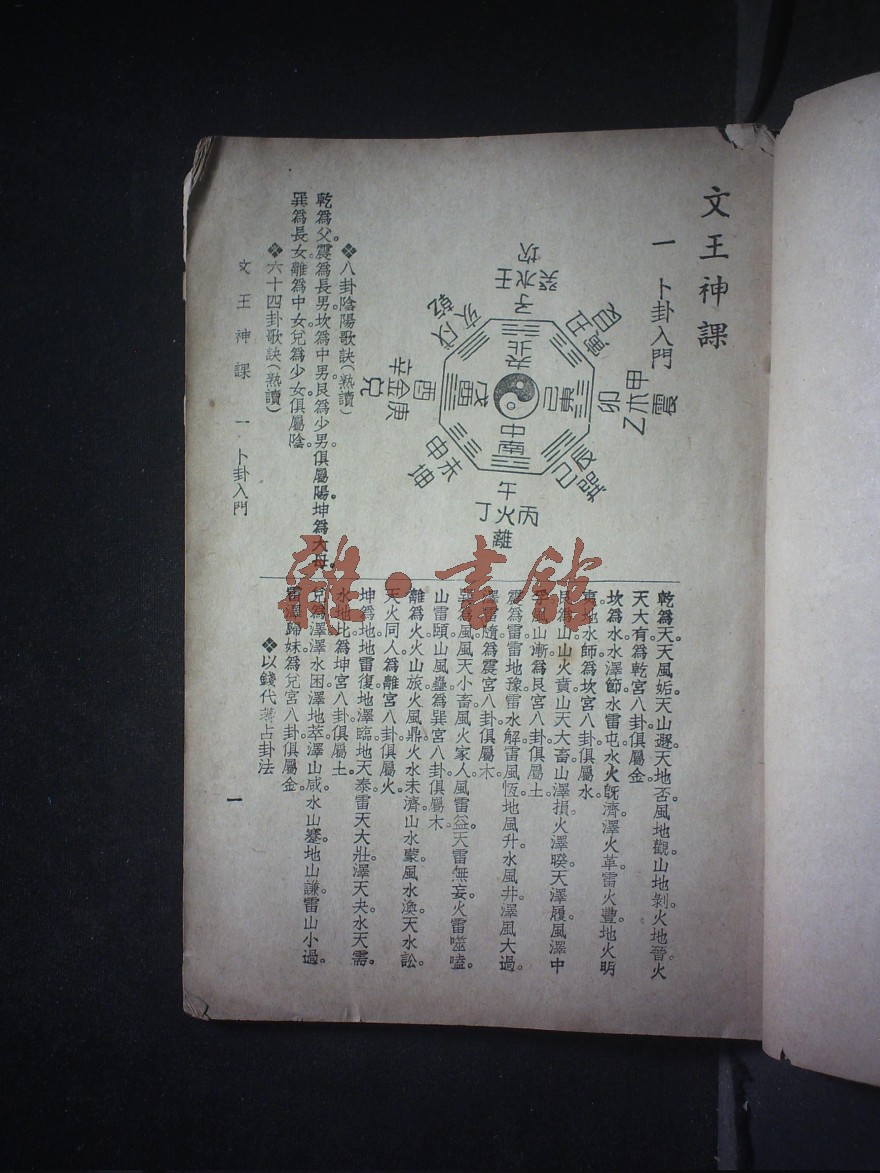 文王神課
一 卜卦入門
坎
癸水壬
子
丑艮寅
甲木乙
震
卯
辰巽巳
午
丙火丁
離
未坤申
庚金辛
兌
酉
戌乾亥
北
東
南
西
中
戊
己
❖八卦陰陽歌訣(熟讀)
乾爲父。震爲長男。坎爲中男。艮爲少男。俱屬陽。坤爲大母。
巽爲長女。離爲中女。兌爲少女。俱屬陰。
❖六十四卦歌訣(熟讀)
乾爲天。天風姤。天山遯。天地否。風地觀。山地剝。火地晉。火
天大有。爲乾宮八卦。俱屬金。
坎爲水。水澤節。水雷屯。水火旣濟。澤火革。雷火豐。地火明
夷。地水師。爲坎宮八卦。俱屬水。
艮爲山。山火賁。山天大畜。山澤損。火澤睽。天澤履。風澤中
孚。風山漸。爲艮宮八卦。俱屬土。
震爲雷。雷地豫。雷水解。雷風恆。地風升。水風井。澤風大過。
澤雷隨。爲震宮八卦。俱屬木。
巽爲風。風天小畜。風火家人。風雷益。天雷無妄。火雷噬嗑。
山雷頤。山風蠱。爲巽宮八卦。俱屬木。
離爲火。火山旅。火風鼎。火水未濟。山水蒙。風水渙。天水訟。
天火同人。爲離宮八卦。俱屬火。
坤爲地。地雷復。地澤臨。地天泰。雷天大壯。澤天夬。水天需。
水地比。爲坤宮八卦。俱屬土。
兌爲澤。澤水困。澤地萃。澤山咸。水山蹇。地山謙。雷山小過。
雷澤歸妹。爲兌宮八卦。俱屬金。
❖以錢代蓍占卦法
文王神課 一 卜卦入門
一
雜·書館